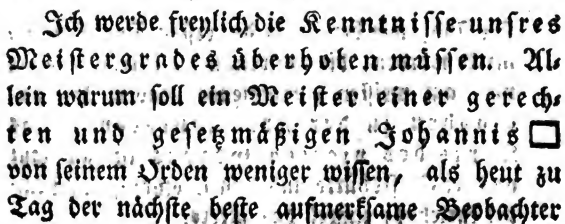 Ich werde freylich die Kenntnisse unsres
Meistergrades überhohen müssen. Al-
lein warum soll ein Meister einer gerech-
ten und gesetzmäßigen Johannis □
von seinem Orden weniger wissen, als heut zu
Tag der nächste beste aufmerksame Beobachter